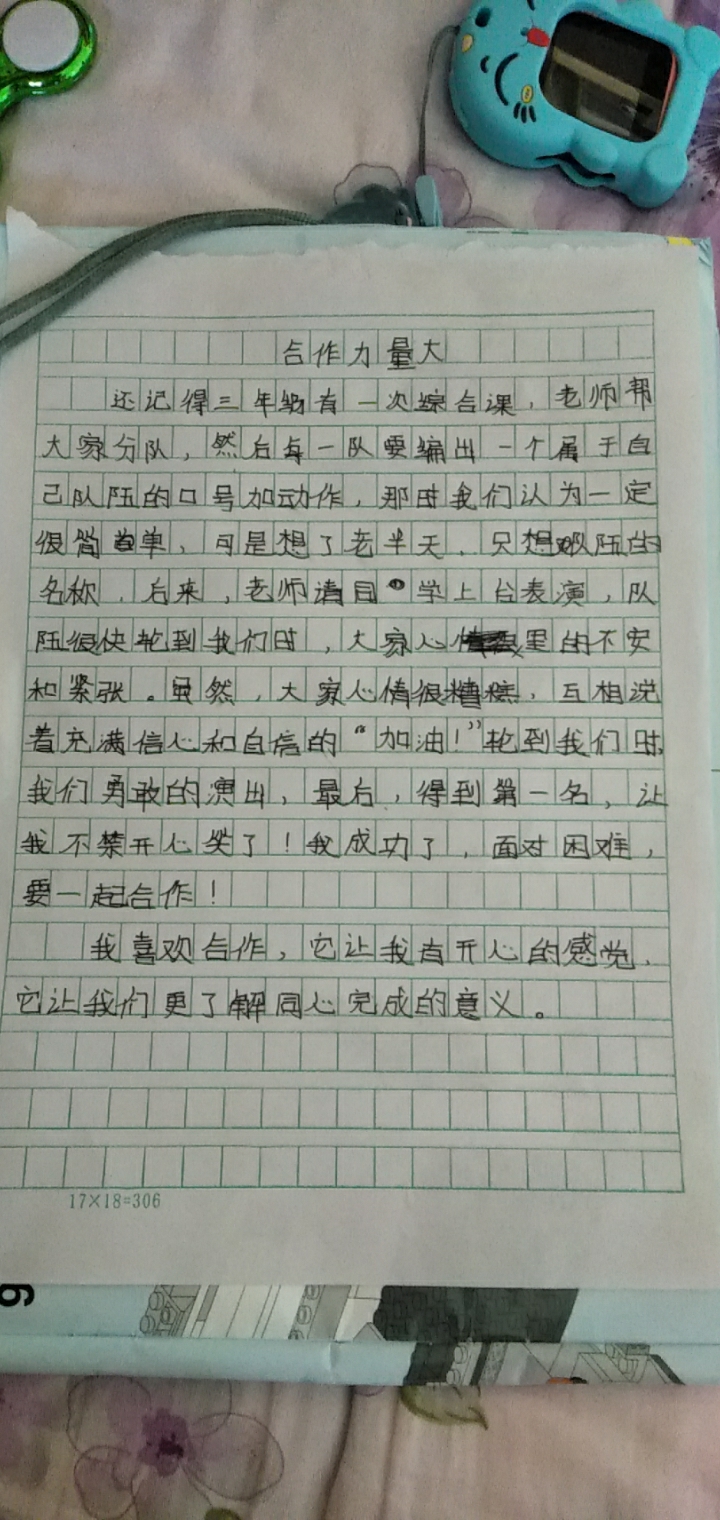 合作力量大
还记得三年级有一次综合课，老师帮
大家分队，然后每一队要编出一个属于自
己队伍的口号加动作，那时我们认为一定
很简单，可是想了老半天，只想队伍的
名称，后来，老师请同学上台表演，队
伍很快轮到我们时，大家心里的不安
和紧张。虽然，大家心情很糟糕，互相说
着充满信心和自信的“加油！”轮到我们时
我们勇敢的演出，最后，得到第一名，让
我不禁开心笑了！我成功了，面对困难，
要一起合作！
我喜欢合作，它让我有开心的感觉，
它让我们更了解同心完成的意义。
17×18=306
9